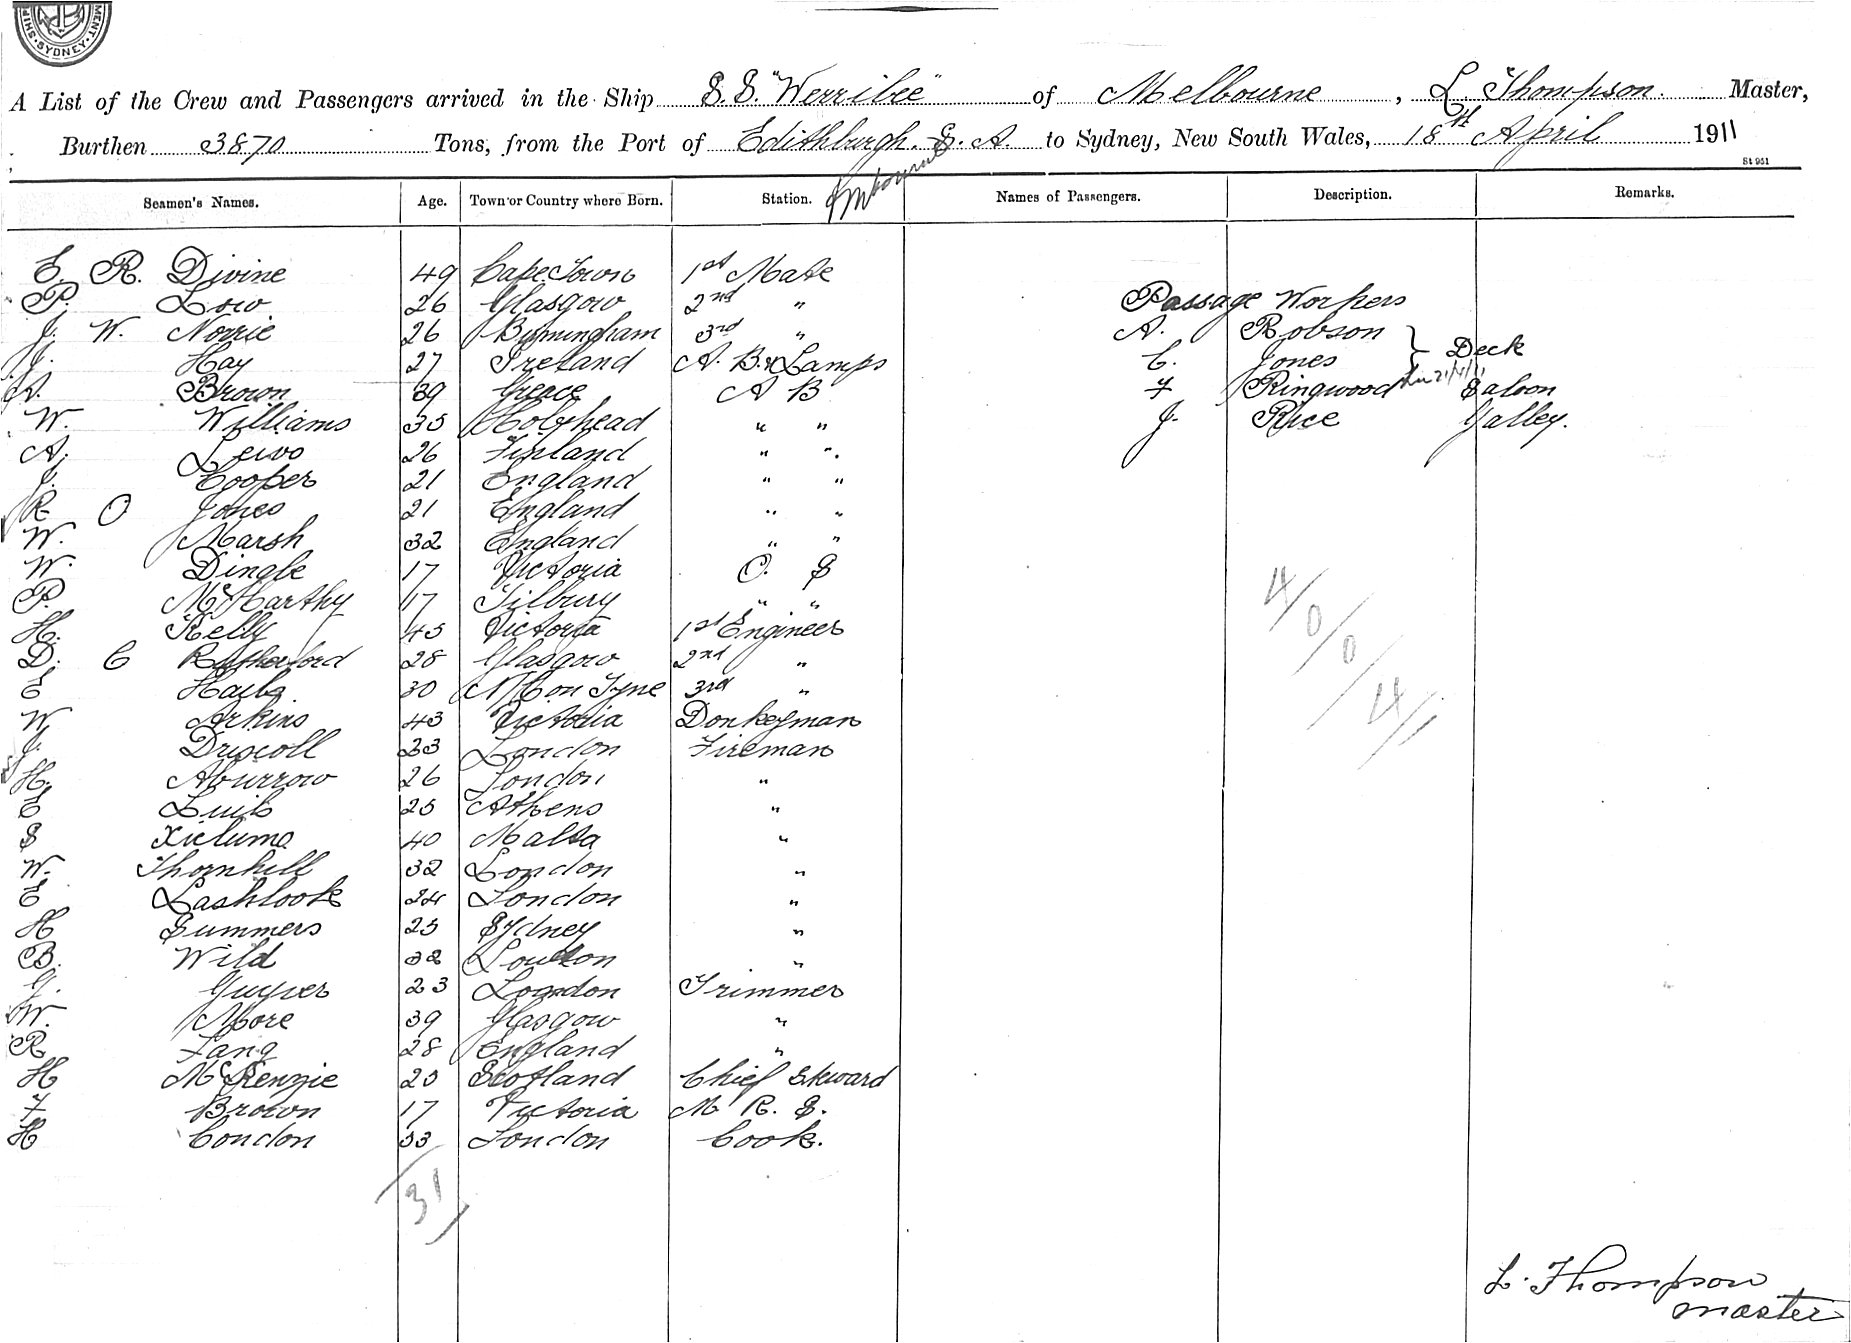 SHIPMENT. SYDNEY
A List of the Crew and Passengers arrived in the Ship S.S. "Werribee" of Melbourne, L. Thompson. Master,
Burthen 3870 Tons, from the Port of Edithburgh. S. A. to Sydney, New South Wales, 18th April 1911
St 951
Seamen's Names. Age. Town or Country where Born. Station. Names of Passengers. Description. Remarks.
E. R. Divine 49 Cape Town 1st Mate
P. Low 26 Glasgow 2nd "
Passage Workers
J. W. Norrie 26 Birmingham 3rd "
A. Robson
J. Hay 27 Ireland A. B. & Lamps
C. Jones } Deck
Brown 39 Greece A B
F Ringwood 21/4/11 Saloon
W. Williams 35 Holyhead " "
J. Rice Galley.
A. Lewo 26 Finland " "
J. Cooper 21 England " "
R O Jones 21 England " "
W. Marsh 32 England " "
W. Dingle 17 Victoria O. S
P. McHarthy 17 Tilbury " "
H. Kelly 45 Victoria 1st Engineer
D. C Rutherford 28 Glasgow 2nd "
E 30 N/C on Tyne 3rd "
W Arkins 43 Victoria Donkeyman
J. Driscoll 23 London Fireman
H. Aburrow 26 London "
E Luib 25 Athens "
S Xicluma 40 Malta "
W. Thornhill 32 London "
E Lashbook 24 London "
H Summers 25 Sydney "
B. Wild 32 London "
G. Guyver 23 London Trimmer
W. More 39 Glasgow "
R Fang 28 England "
H McKenzie 25 Scotland Chief Steward
F Brown 17 Victoria M R. S.
H Condon 33 London Cook.
4/0/0/4/1
31
L. Thompson
master